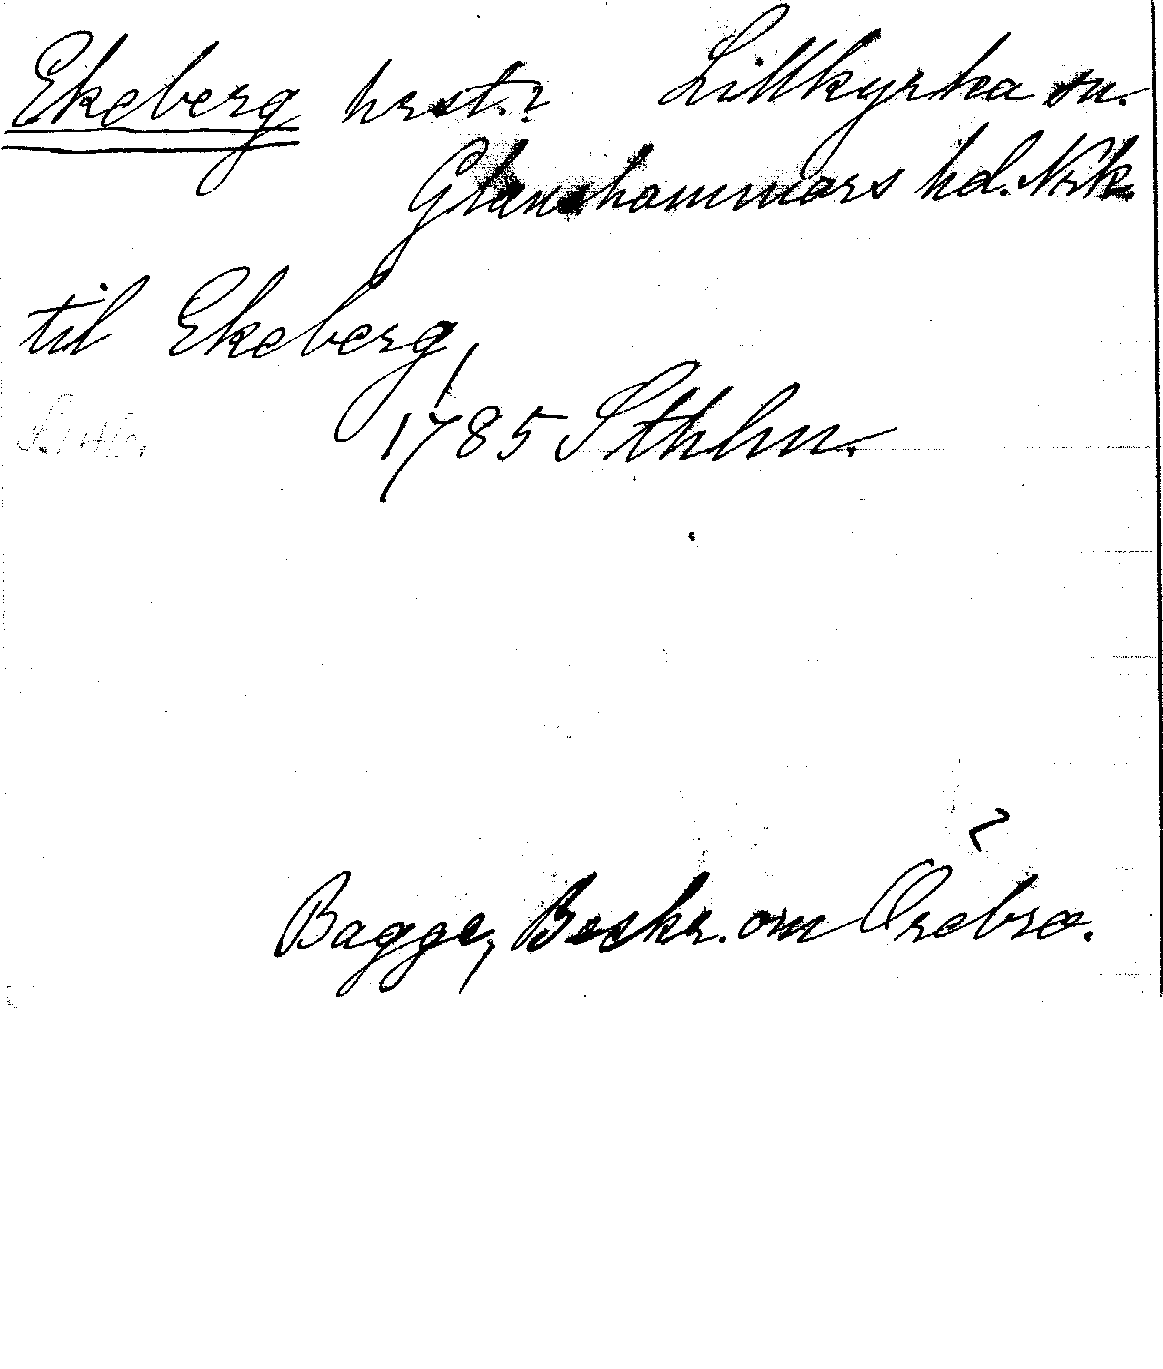 Ekeberg hrst.? Lillkyrka sn.
Glanshammars hd. Nrk.
til Ekeberg,
1785 Sthlm.
Bagge, Beskr. om Örebro.